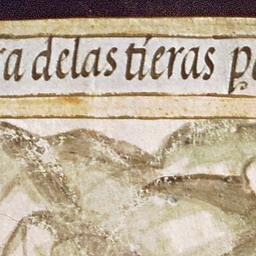 ra delas tieras p